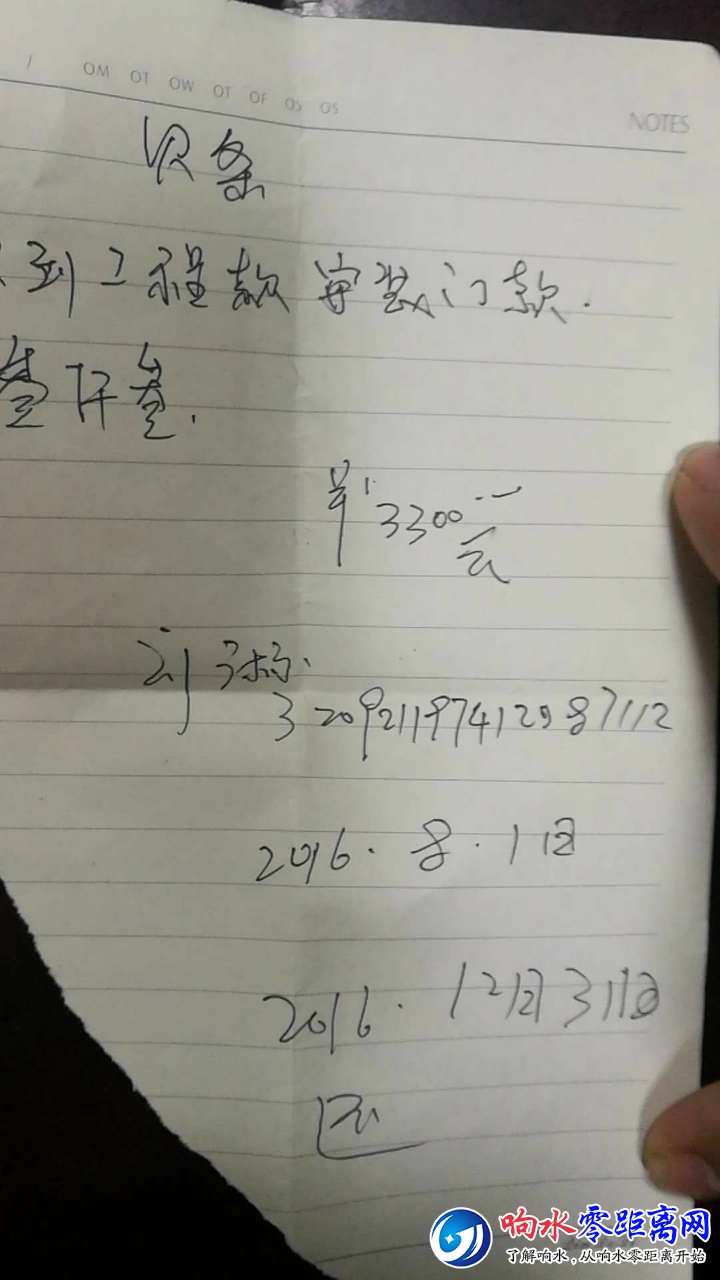 OM OT OW OT OF OS OS
NOTES
收条
到工程款安装门款.
叁仟叁.
3300元
刘
2016.8.1日
2016.12月31日
还
响水零距离网
了解响水,从响水零距离开始